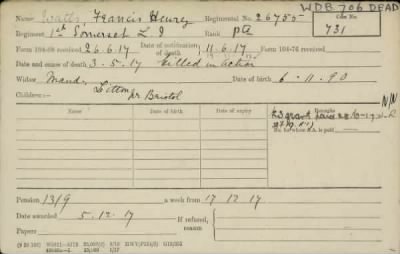 WDB 706 DEAD
Name Watts, Francis Henry Regimental No. 26755
Case No.
731
Regiment 1st Somerset L I Rank Pte
Form 104-88 received 26.6.17 Date of notification, death 11.6.17 Form 104-76 received
Date and cause of death 3.5.17 Killed in action
Widow Maud, Date of birth 6.11.90
Children:— Litton, nr Bristol
N/N
Name Date of birth Date of expiration Remarks
£3 grant paid
No. for whom S.A. is paid
Pension 13/9 a week from 17 12 17
Date awarded 5.12.17 If refused,
reason
Papers